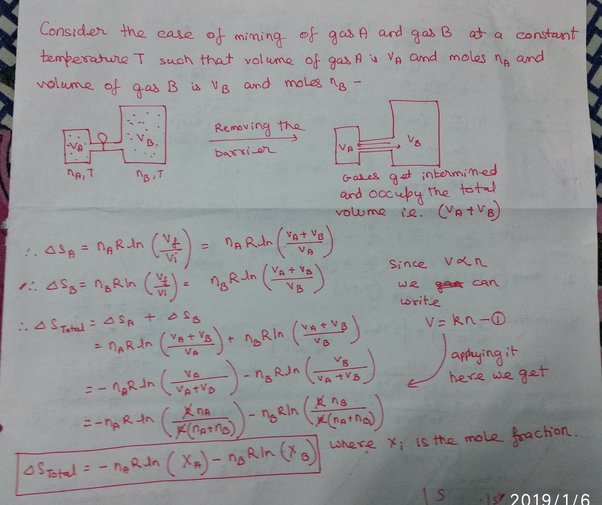 Consider the case of mining of gas A and gas B at a constant
temperature T such that volume of gas A is VA and moles nA and
volume of gas B is VB and moles nB –
VA
VB
nA, T
nB, T
Removing the
barrier
VA
VB
Gases get intermined
and occupy the total
volume i.e. (VA + VB)
∴ ΔSA = nA R ln (Vf/Vi) = nA R ln ((VA + VB)/VA)
∴ ΔSB = nB R ln (Vf/Vi) = nB R ln ((VA + VB)/VB)
∴ ΔSTotal = ΔSA + ΔSB
= nA R ln ((VA + VB)/VA) + nB R ln ((VA + VB)/VB)
= – nA R ln (VA/(VA + VB)) – nB R ln (VB/(VA + VB))
= – nA R ln (k nA/k(nA + nB)) – nB R ln (k nB/k(nA + nB))
Since V ∝ n
we can
write
V = kn – ①
applying it
here we get
ΔSTotal = – nA R ln (XA) – nB R ln (XB) where Xi is the mole fraction.
2019/1/6